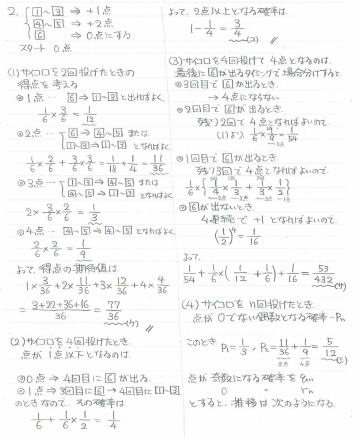 2. [1~3] ⇒ +1点
[4~5] ⇒ +2点
[6] ⇒ 0点にする
スタート 0点
(1)サイコロを2回投げたときの
得点を考える
◎1点… [6] ⇒ [1~3] と出ればよく、
1/6 × 3/6 = 1/12
◎2点… [6] ⇒ [4~5] または
[1~3] ⇒ [1~3] となればよく
1/6 × 2/6 + 3/6 × 3/6 = 1/18 + 1/4 = 11/36
◎3点… [1~3] ⇒ [4~5] または
[4~5] ⇒ [1~3] となればよく
2 × 3/6 × 2/6 = 1/3
◎4点… [4~5] ⇒ [4~5] となればよく
2/6 × 2/6 = 1/9
よって、得点の期待値は
1 × 3/36 + 2 × 11/36 + 3 × 12/36 + 4 × 4/36
= (3+22+36+16)/36 = 77/36 (ケ)
(2)サイコロを4回投げたとき、
点が1点以下となるのは、
◎0点 ⇒ 4回目に[6]が出る.
◎1点 ⇒ 3回目に[6] ⇒ 4回目に[1~3]
のときなので、その確率は、
1/6 + 1/6 × 1/2 = 1/4
よって、2点以上となる確率は.
1 - 1/4 = 3/4 (コ)
(3)サイコロを4回投げて4点となるのは.
最後に[6]が出るタイミングで場合分けすると
◎3回目で[6]が出るとき.
→ 4点にならない
◎2回目で[6]が出るとき.
残り2回で4点となればよいので.
(1)より、1/6 × 1/9 = 1/54
◎1回目で[6]が出るとき
残り3回で4点となればよいので.
◎[6]が出ないとき.
4連続で+1となればよいので.
(1/2)^4 = 1/16
よって.
1/54 + 1/6 × (1/12 + 1/6) + 1/16 = 53/432 (サ)
(4)サイコロをn回投げたとき.
点が0でない偶数となる確率…Pn
このとき P1 = 1/3 , P2 = 11/36 + 1/9 = 5/12
2点 4点
点が奇数になる確率をqn
0 〃 rn
とすると、推移は次のようになる.